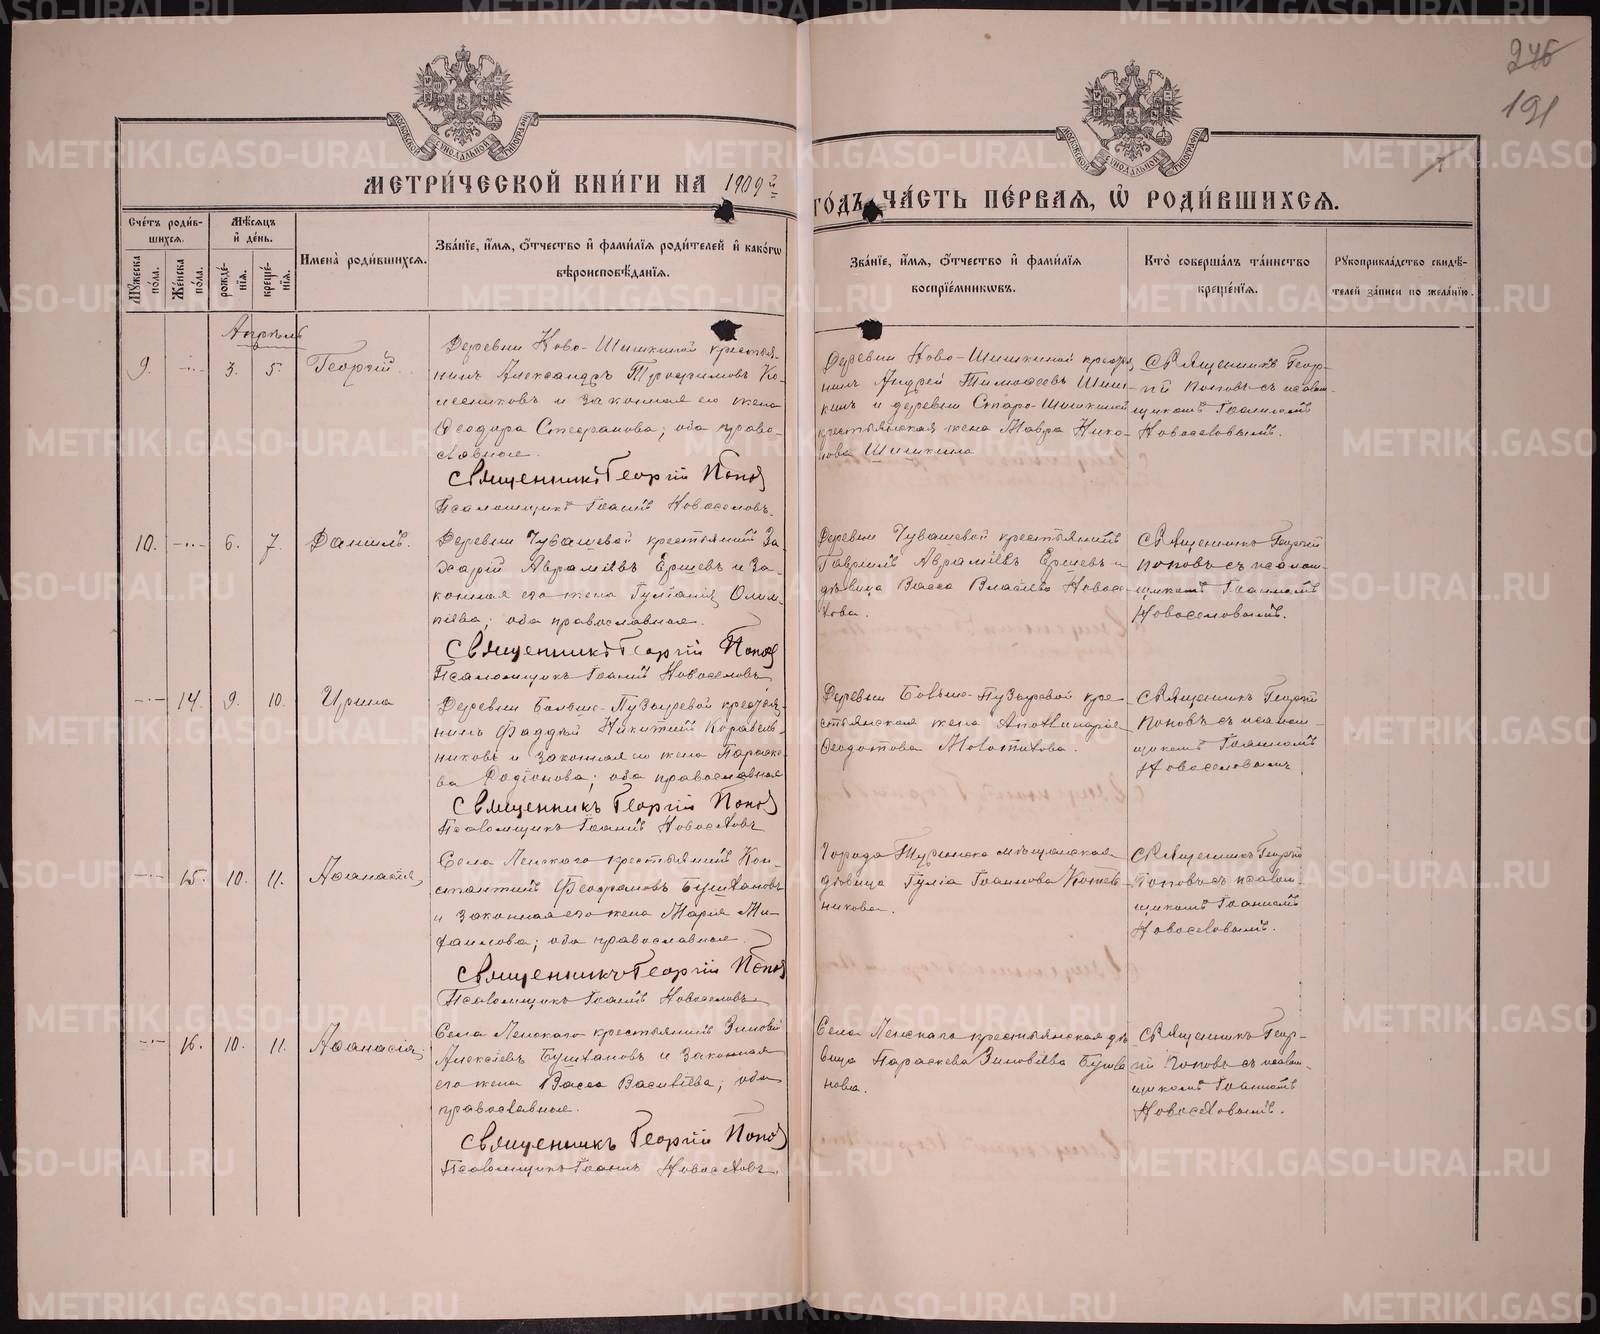 246
191
МЕТРИ́ЧЕСКОЙ КНИ́ГИ НА 1909й
ГОДЪ, ЧА́СТЬ ПЕ́РВАЯ, Ѡ РОДИ́ВШИХСЯ.
Сче́тъ роди́в-
шихся.
Мꙋ́жеска по́ла.
Же́нска по́ла.
Мѣ́сяцъ и́ де́нь.
рожде́-нїя.
креще́-нїя.
Имена̀ роди́вшихся.
Зва́нїе, и́мя, ѻ́тчество и́ фами́лїя роди́телей и́ како́гѡ
вѣроисповѣ́данїя.
Зва́нїе, и́мя, ѻ́тчество и́ фами́лїя
воспрїе́мникѡвъ.
Кто̀ соверша́лъ та́инство
креще́нїя.
Рꙋкоприкла́дство свидѣ́-
телей за́писи по жела́нїю.
Апрѣль
9. 3. 5. Георгій
Деревни Ново-Шишкиной крестья-
нинъ Александръ Трофимовъ Ко-
лесниковъ и законная его жена
Ѳеодора Стефанова; оба право-
славные.
Священникъ Георгій Поповъ
Псаломщикъ Іоаннъ Новоселовъ.
Деревни Ново-Шишкиной крестья-
нинъ Андрей Тимоѳеевъ Шиш-
кинъ и деревни Старо-Шишкиной
крестьянская жена Мавра Нико-
нова Шишкина
Священникъ Геор-
гій Поповъ съ псалом-
щикомъ Іоанномъ
Новоселовымъ.
10. 6. 7. Даніилъ.
Деревни Чувашевой крестьянинъ За-
харій Авраміевъ Ершевъ и за-
конная его жена Іуліанія Олим-
піева; оба православные.
Священникъ Георгій Поповъ
Псаломщикъ Іоаннъ Новоселовъ
Деревни Чувашевой крестьянинъ
Гавріилъ Авраміевъ Ершевъ и
дѣвица Васса Власіева Новосе-
лова.
Священникъ Георгій
Поповъ съ псалом-
щикомъ Іоанномъ
Новоселовымъ.
14. 9. 10. Ирина
Деревни Больше-Пузыревой крестья-
нинъ Фаддѣй Никитинъ Корабель-
никовъ и законная его жена Параске-
ва Родіонова; оба православные
Священникъ Георгій Поповъ
Псаломщикъ Іоаннъ Новоселовъ
Деревни Больше-Пузыревой кре-
стьянская жена Аполлинарія
Ѳеодотова Молотилова.
Священникъ Георгій
Поповъ съ псалом-
щикомъ Іоанномъ
Новоселовымъ
15. 10. 11. Аѳанасія
Села Ленскаго крестьянинъ Кон-
стантинъ
и законная его жена Марія Ми-
хаилова; оба православные
Священникъ Георгій Поповъ
Псаломщикъ Іоаннъ Новоселовъ
Города Туринска мѣщанская
дѣвица Іулія Іоаннова Кожев-
никова.
Священникъ Георгій
Поповъ съ псалом-
щикомъ Іоанномъ
Новоселовымъ.
16. 10. 11. Аѳанасія
Села Ленскаго крестьянинъ Зиновій
Алексіевъ Бушлановъ и законная
его жена Васса Василіева; оба
православные.
Священникъ Георгій Поповъ
Псаломщикъ Іоаннъ Новоселовъ.
Села Ленскаго крестьянская дѣ-
вица Параскева Зиновіева Бушла-
нова.
Священникъ Геор-
гій Поповъ съ псалом-
щикомъ Іоанномъ
Новоселовымъ.
METRIKI.GASO-URAL.RU